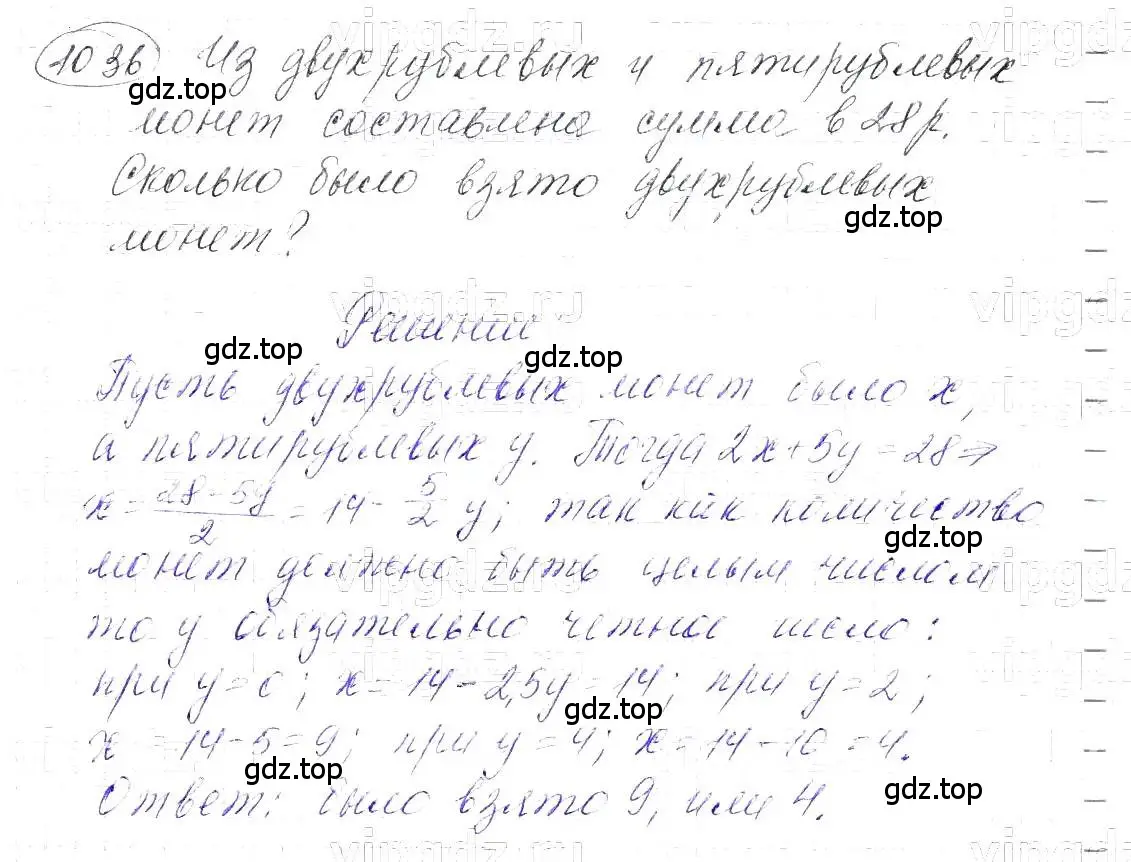 1036 Из двухрублевых и пятирублевых
монет составлена сумма в 28 р.
Сколько было взято двухрублевых
монет?
Решение
Пусть двухрублевых монет было x,
а пятирублевых y. Тогда 2x+5y=28⇒
x = (28-5y)/2 = 14 - 5/2 y; так как количество
монет должно быть целым числом
то y обязательно четное число:
при y=0; x=14-2,5y=14; при y=2;
x=14-5=9; при y=4; x=14-10=4.
Ответ: было взято 9, или 4.
gdz.top
gdz.top
gdz.top
gdz.top
gdz.top
gdz.top
gdz.top
gdz.top
vipgdz.ru
vipgdz.ru
vipgdz.ru
vipgdz.ru